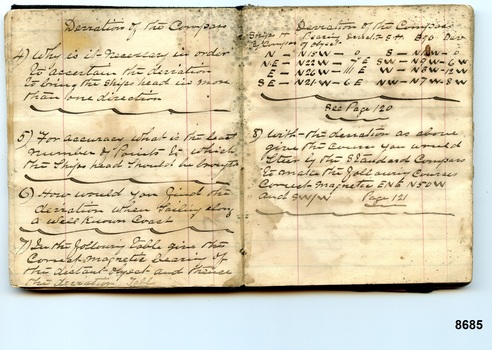 Deviation of the Compass
4) Why is it necessary in order
to ascertain the deviation
to bring the ships head in more
than one direction
5) For accuracy what is the least
number of Points to which
the Ships head should be brought
6) How would you find the
deviation when Sailing along
a Well Known Coast
7) In the following table give the
Correct Magnetic bearing of
the distant object and thence
the deviation
Deviation of the Compass
Ships H Bearing Ships H Brg Dev
of object
N — N 15 W — 0 S — 0
NE — N 22 W — 7 E SW — N 9 W — 6 W
E — N 26 W — 11 E W — 12 W
SE — N 21 W — 6 E NW — N 7 W — 8 W
See Page 120
8) With the deviation as above
give the course you would
Steer by the Standard Compass
to make the following Courses
Correct Magnetic ENE N50W
and SW/W Page 121
8685